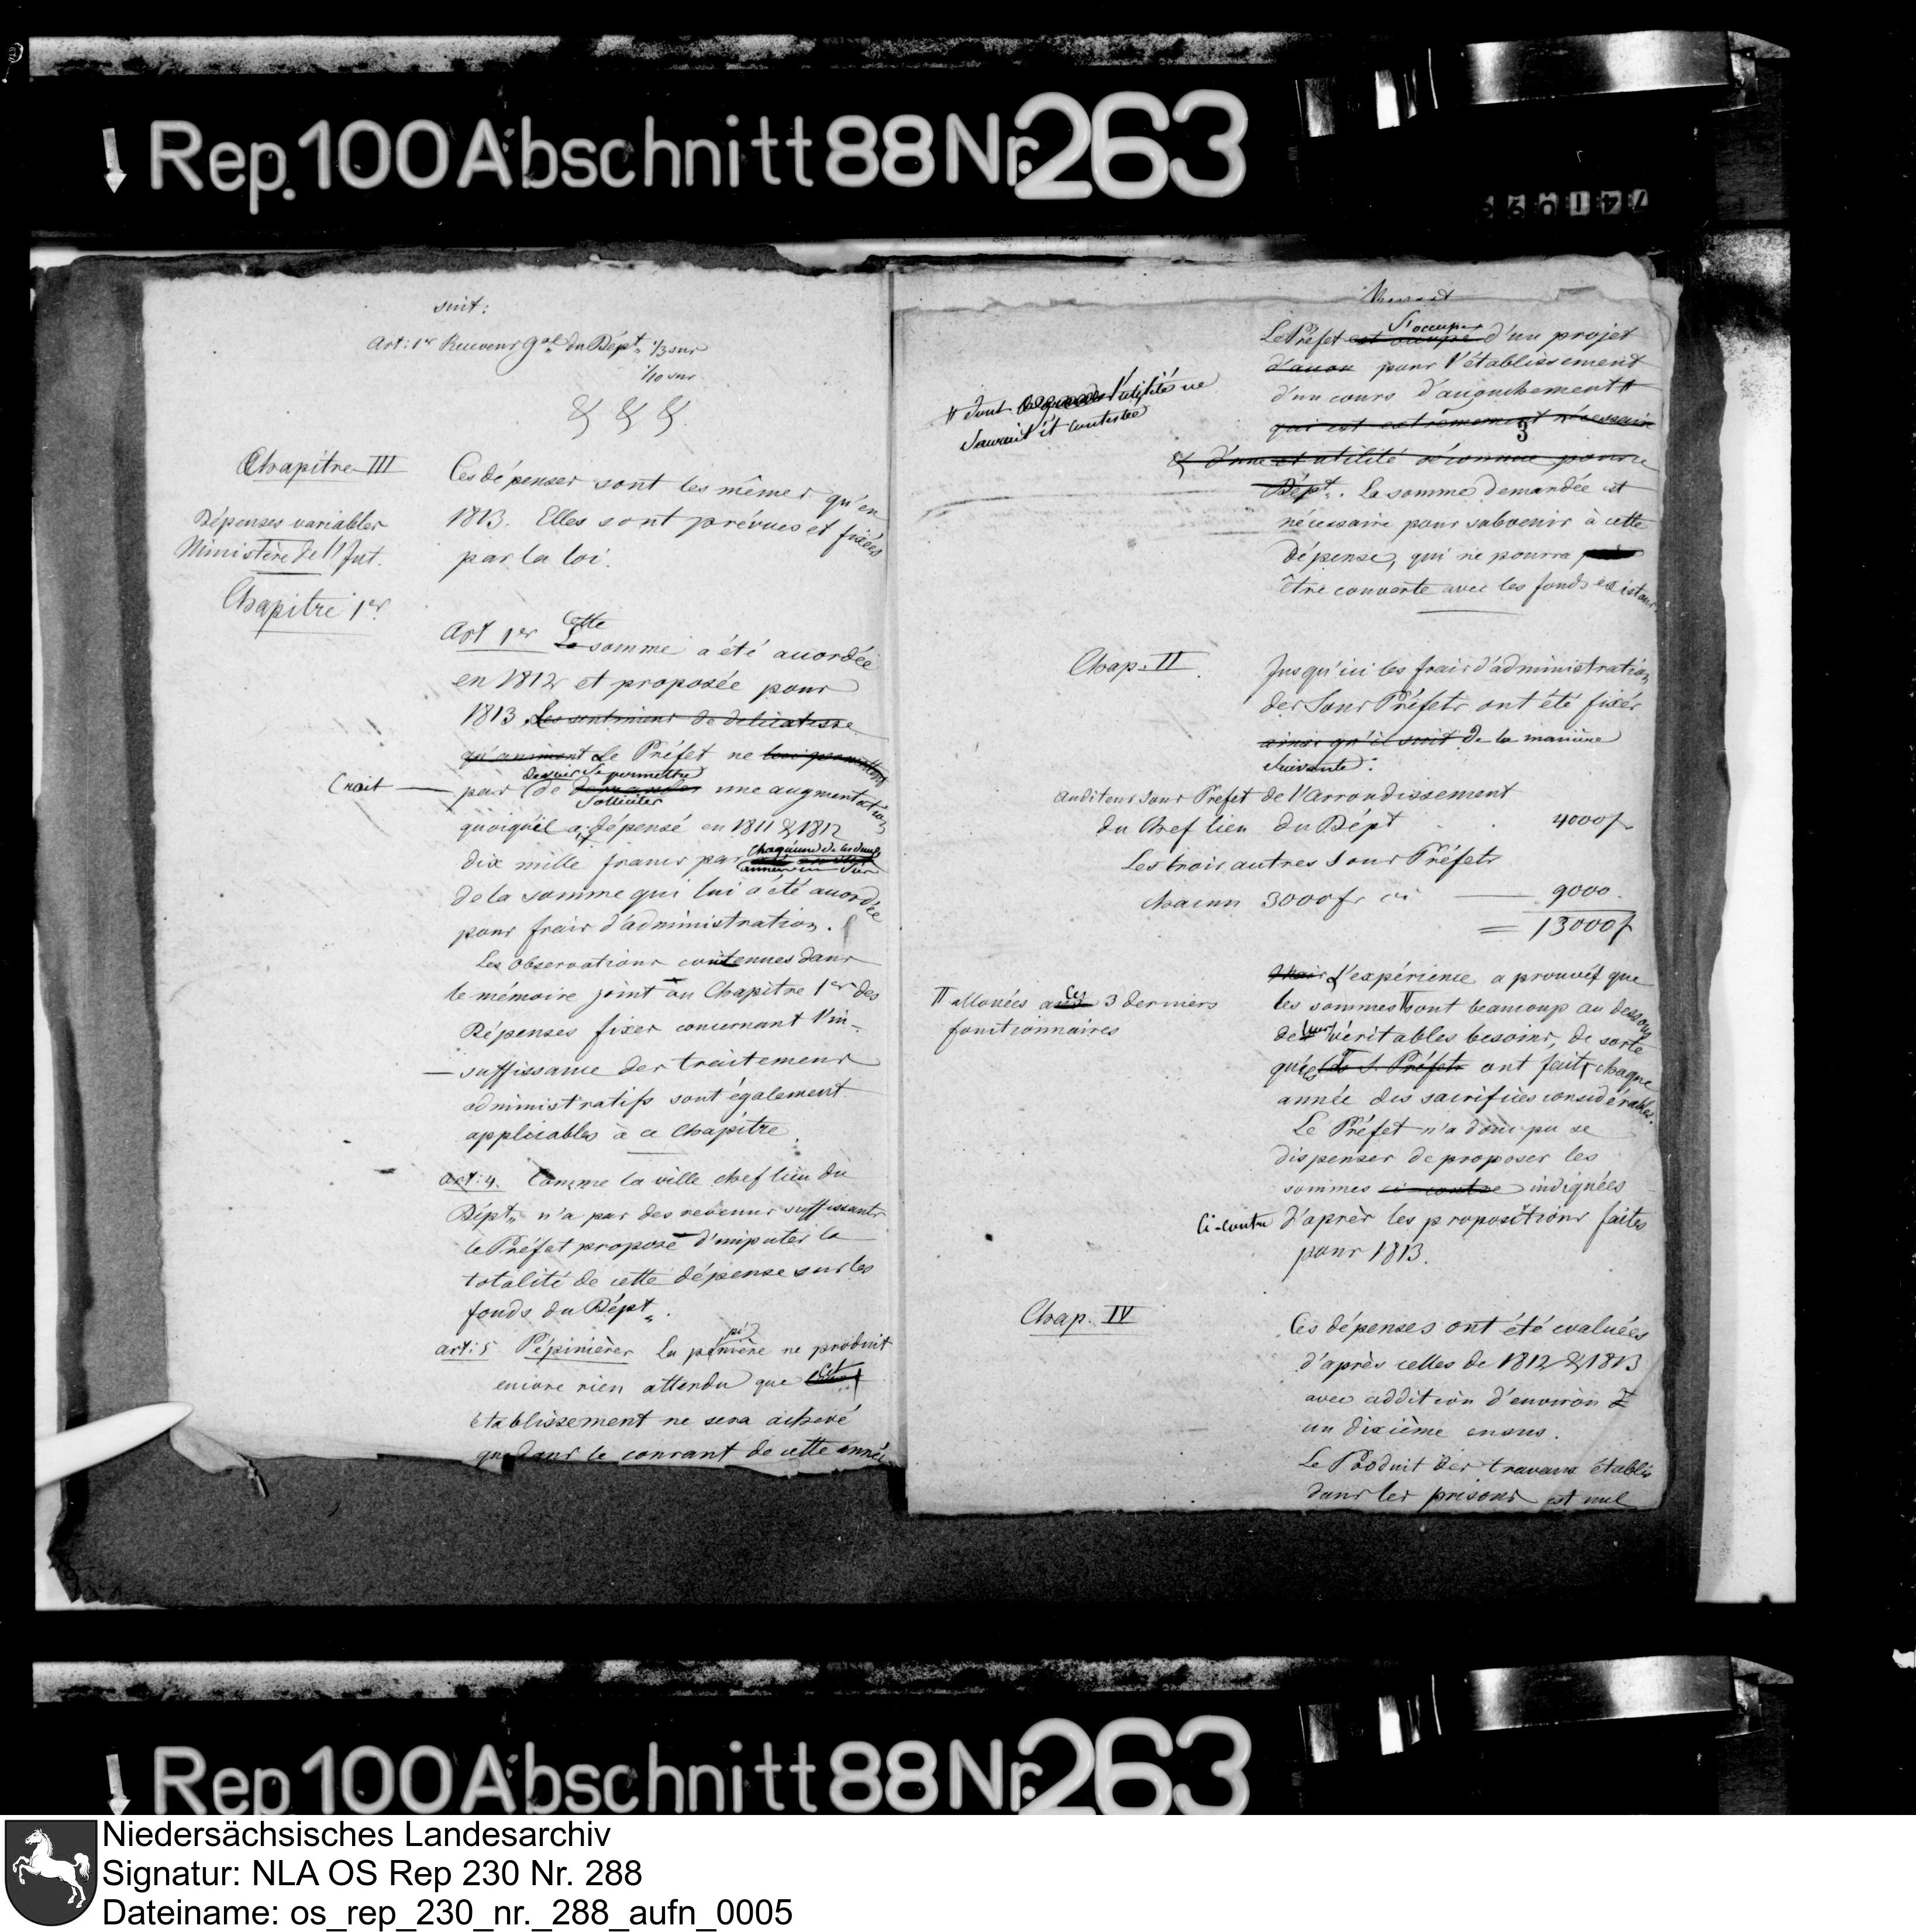 Rep. 100 Abschnitt 88 Nr. 263
suit:
Art: 1er Receveur Gal du Dépt 1/3 sur
1/10 sur
& & &
Chapitre III
Ces dépenses sont les mêmes qu'en
1813. Elles sont prévues et fixées
par la loi.
Dépenses variables
Ministère de l'Int.
Chapitre 1er
Art 1er Cette
La somme a été accordée
en 1812 et proposée pour
1813. Les sentimens de délicatesse
qu'animent Le Préfet ne lui permettent
Croit
devoir se permettre
pas de demander une augmentation
solliciter
quoiqu'il ait dépensé en 1811 & 1812
dix mille francs par chaqu'une de les deux
années en sus
de la somme qui lui a été accordée
pour frais d'administration.
Les observations contenues dans
le mémoire joint au Chapitre 1er des
Dépenses fixes concernant l'in-
suffissance des traitemens
administratifs sont également
applicables à ce Chapitre.
Art: 4. Comme la ville chef lieu du
Dépt n'a pas des revenus suffissants
le Préfet propose d'imputer la
totalité de cette dépense sur les
fonds du Dépt.
Art: 5 Pépinières La pepinière ne produit
encore rien attendu que cet
établissement ne sera achevé
que dans le courant de cette année
Le Préfet est occupé s'occupe d'un projet
d'avon pour l'établissement
d'un cours d'accouchement #
# dont l'utilité ne
saurait êt contestée
qui est extrêmement nécessaire
3
& d'une utilité reconnue pour ce
Dépt. La somme demandée est
nécessaire pour subvenir à cette
dépense, qui ne pourra
être couverte avec les fonds existans
Chap. II.
Jusqu'ici les frais d'administration
des Sous Préfets ont été fixés
ainsi qu'il suit de la manière
suivante:
auditeur sous Prefet de l'Arrondissement
du Chef lieu du Dépt . . 4000 f
Les trois autres Sous Préfets
chacun 3000 fr ci — 9000
= 13000 f
Mais L'expérience a prouvé que
les sommes sont beaucoup au dessous
allouées à ces 3 derniers
fonctionnaires
de leur véritables besoins, de sorte
qu'ils les S. Préfets ont fait chaque
année des sacrifices considérables.
Le Préfet n'a donc pu se
dispenser de proposer les
sommes ci contre indiquées
Ci-contre d'après les propositions faites
pour 1813.
Chap. IV
Ces dépenses ont été evaluées
d'après celles de 1812 & 1813
avec addition d'environ
un dixième en sus.
Le Produit des travaux établis
dans les prisons est nul
Rep. 100 Abschnitt 88 Nr. 263
Niedersächsisches Landesarchiv
Signatur: NLA OS Rep 230 Nr. 288
Dateiname: os_rep_230_nr._288_aufn_0005